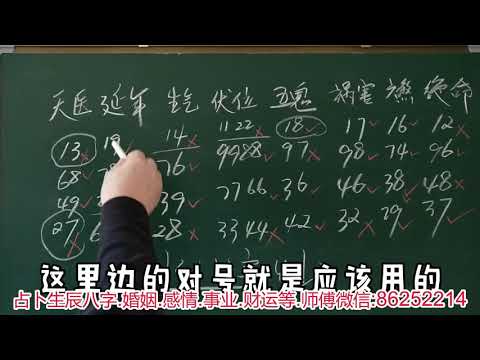 天医 延年 生气 伏位 五鬼 祸害 六煞 绝命
13× 19 14× 11 22× 18✓ 17✓ 16✓ 12×
68✓ 76✓ 9988✓ 97× 98✓ 74✓ 96✓
49✓ 39✓ 7766✓ 36✓ 46✓ 38✓ 48×
27× 28× 3344× 42✓ 32× 29✓ 37✓
这里边的对号就是应该用的
占卜生辰八字.婚姻.感情.事业.财运等.师傅微信:86252214